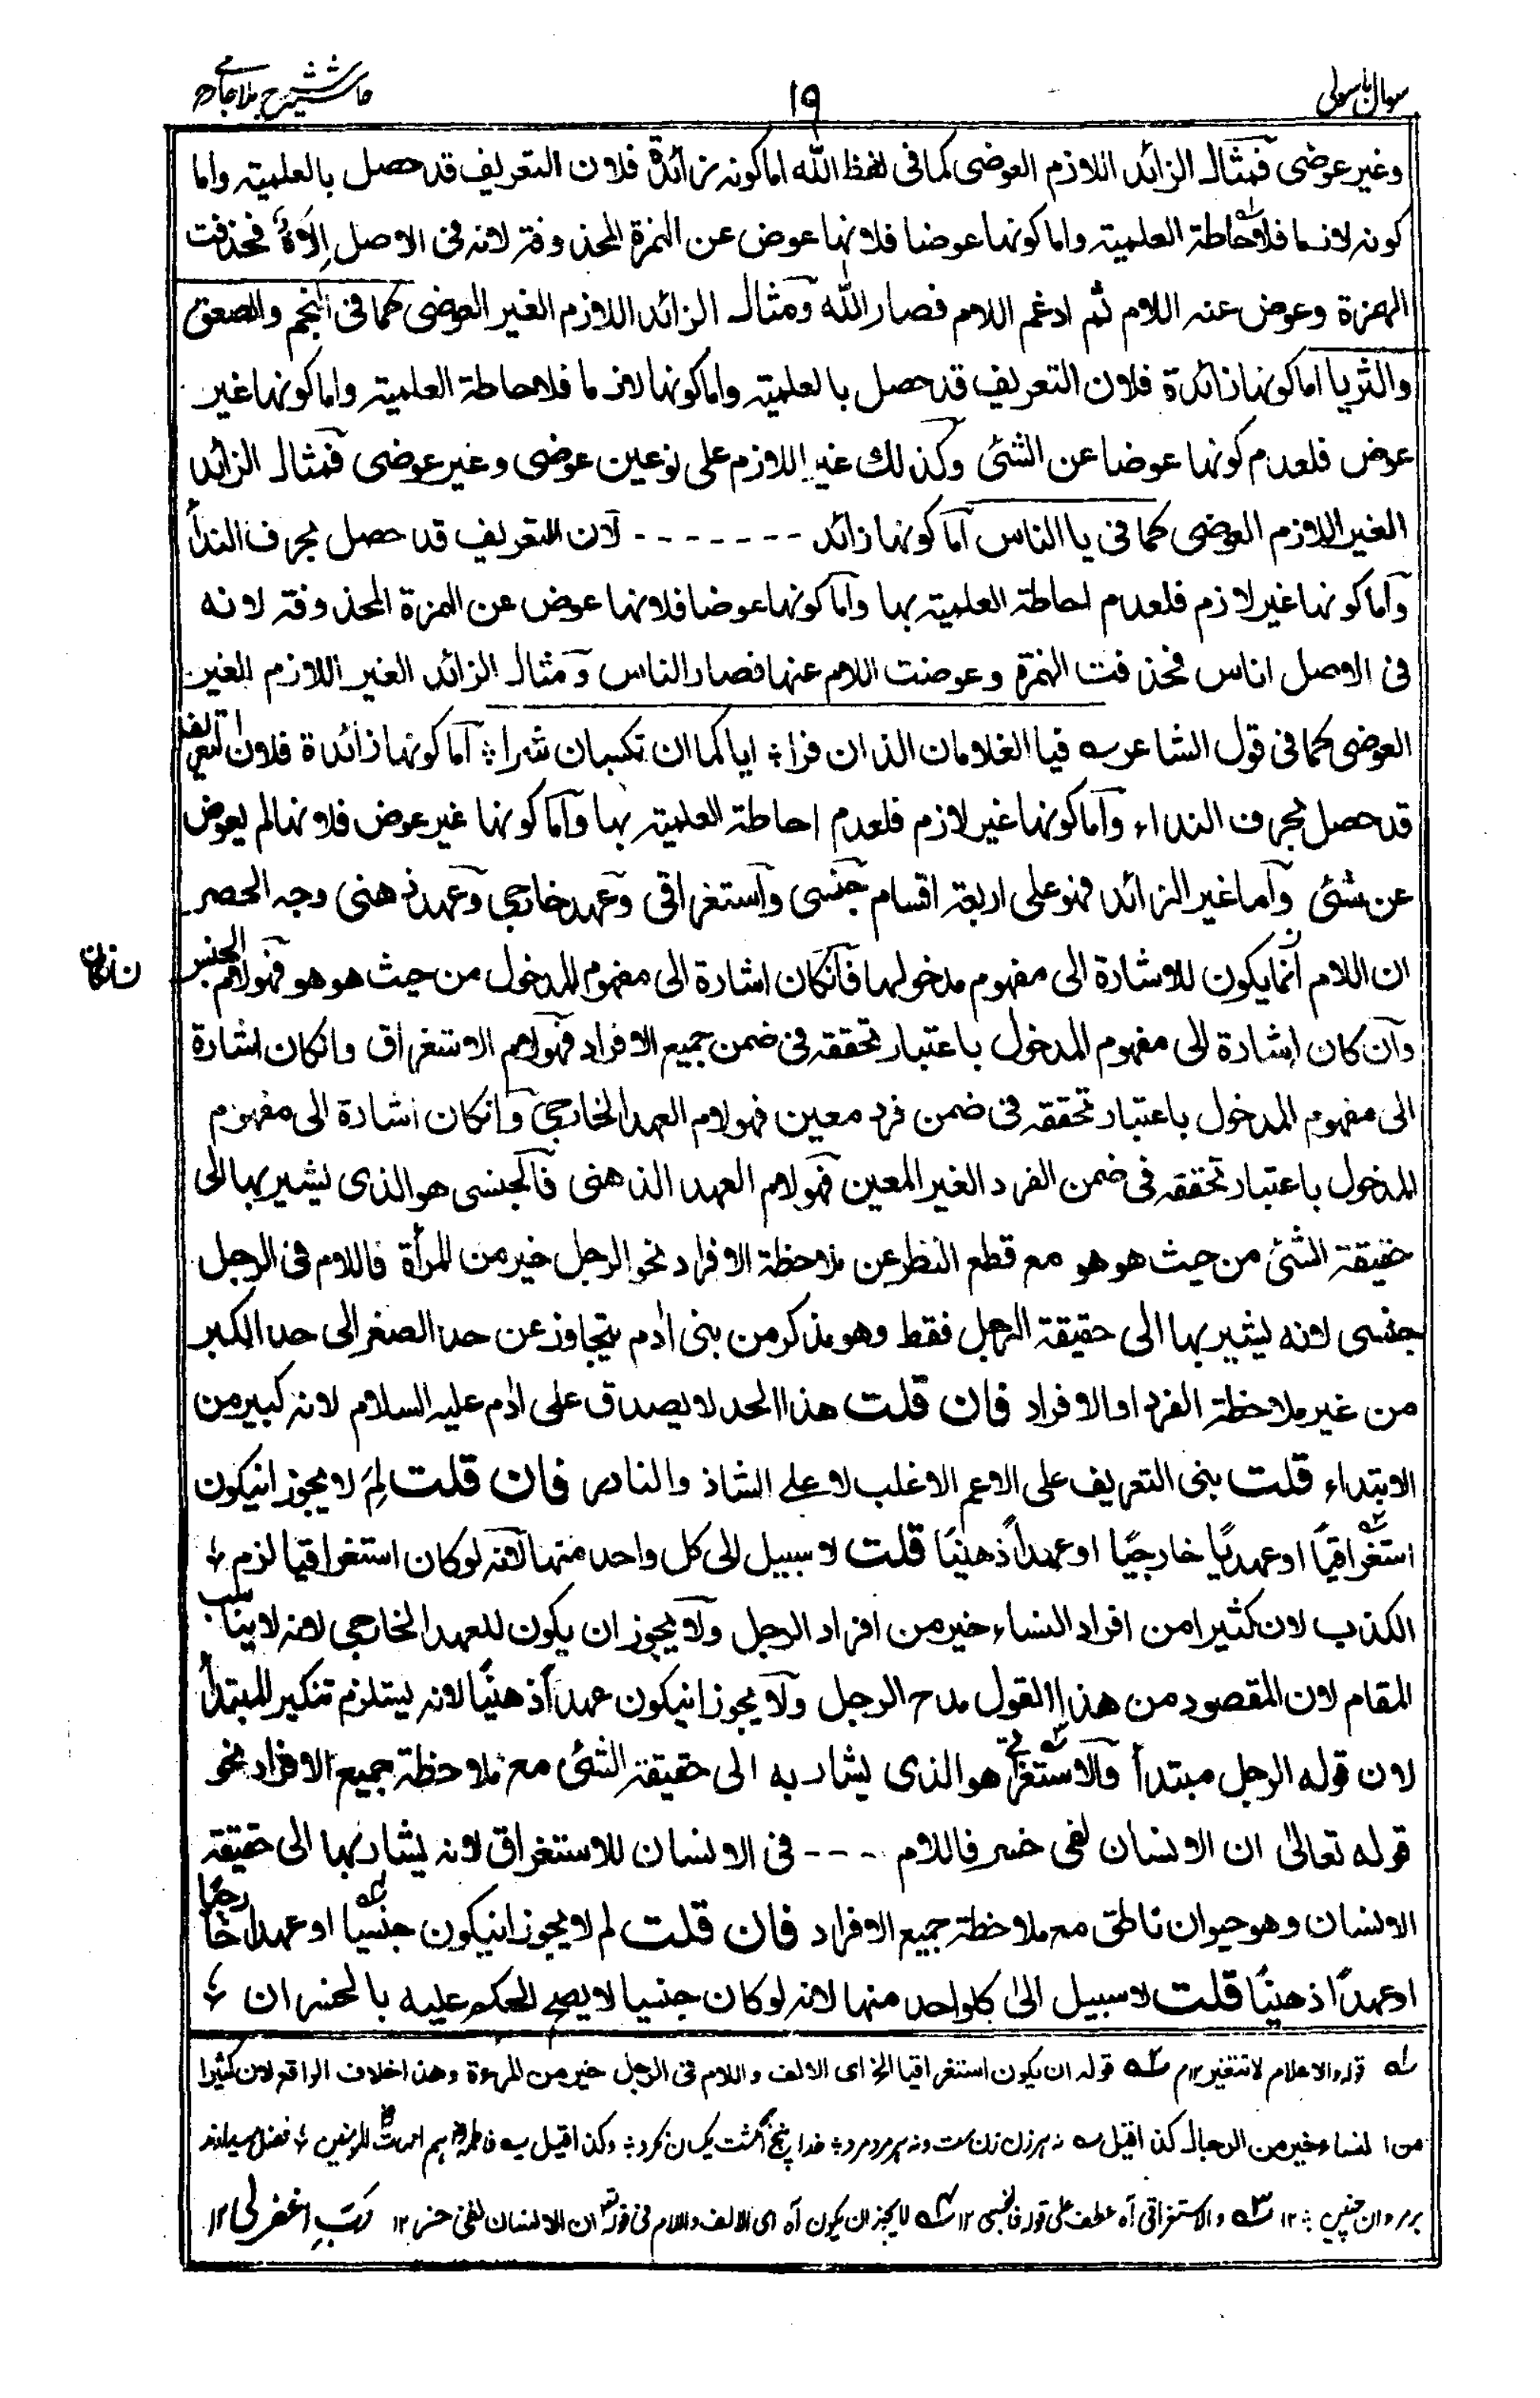 سوال باسولی
١٩
حاشیہ شرح ملا جامی
وغیر عوضی فمثال الزائد اللازم العوضی کما فی لفظ الله اما کونہ زائدة فلان التعریف قد حصل بالعلمیتہ واما
کونہ لازما فلاحاطة العلمیتہ واما کونها عوضا فلانها عوض عن الهمزة المحذوفتہ لانہ فی الاصل اِلَاهٌ فحذفت
الهمزة وعوض عنہ اللام ثم ادغم اللام فصار الله ومثال الزائد اللازم الغیر العوضی کما فی النجم والصعق
والثریا اما کونها زائدة فلان التعریف قد حصل بالعلمیتہ واما کونها لازما فلاحاطة العلمیتہ واما کونها غیر
عوض فلعدم کونها عوضا عن الشئ وکذلك غیر اللازم علی نوعین عوضی وغیر عوضی فمثال الزائد
الغیر اللازم العوضی کما فی یا الناس اما کونها زائد - - - - - - - لان التعریف قد حصل بحرف النداء
واما کونها غیر لازم فلعدم احاطة العلمیتہ بها واما کونها عوضا فلانها عوض عن الهمزة المحذوفتہ لانه
فی الاصل اناس فحذفت الهمزة وعوضت اللام عنها فصار الناس ومثال الزائد الغیر اللازم الغیر
العوضی کما فی قول الشاعر ؎ فیا الغلامان الذان فرا ؛ ایاکما ان تکسبان شرا ؛ اما کونها زائدة فلان التعریف
قد حصل بحرف النداء واما کونها غیر لازم فلعدم احاطة العلمیتہ بها واما کونها غیر عوض فلانها لم یعوض
عن شئی واما غیر الزائد فهو علی اربعتہ اقسام جنسی واستغراقی وعهد خارجی وعهد ذهنی وجہ الحصر
ان اللام انما یکون للاشارة الی مفهوم مدخولها فانکان اشارة الی مفهوم المدخول من حیث هو هو فهو لام الجنس
وان کان اشارة الی مفهوم المدخول باعتبار تحققہ فی ضمن جمیع الافراد فهو لام الاستغراق وانکان اشارة
الی مفهوم المدخول باعتبار تحققہ فی ضمن فرد معین فهو لام العهد الخارجی وانکان اشارة الی مفهوم
المدخول باعتبار تحققہ فی ضمن الفرد الغیر المعین فهو لام العهد الذهنی فالجنسی هو الذی یشیر بها الی
حقیقتہ الشئ من حیث هو هو مع قطع النظر عن ملاحظة الافراد نحو الرجل خیر من المرأة فاللام فی الرجل
جنسی لانه یشیر بها الی حقیقتہ الرجل فقط وهو مذکر من بنی ادم یتجاوز عن حد الصغر الی حد الکبر
من غیر ملاحظة الفرد او الافراد فان قلت هذا الحد لا یصدق علی ادم علیہ السلام لانہ کبیر من
الابتداء قلت بنی التعریف علی الاعم الاغلب لا علی الشاذ والنادر فان قلت لِمَ لا یجوز انیکون
استغراقیًا او عهدیًا خارجیًا او عهداً ذهنیًا قلت لا سبیل الی کل واحد منها لانہ لو کان استغراقیا لزم
الکذب لان کثیرا من افراد النساء خیر من افراد الرجل ولا یجوز ان یکون للعهد الخارجی لانہ لا یناسب
المقام لان المقصود من هذا القول مدح الرجل ولا یجوز انیکون عهداً ذهنیًا لانہ یستلزم تنکیر المبتدأ
لان قوله الرجل مبتدأ والاستغراقی هو الذی یشار به الی حقیقتہ الشئ مع ملاحظة جمیع الافراد نحو
قوله تعالیٰ ان الانسان لفی خسر فاللام - - - - فی الانسان للاستغراق لانہ یشار بها الی حقیقتہ
الانسان وهو حیوان ناطق مع ملاحظة جمیع الافراد فان قلت لم لا یجوز انیکون جنسیا او عهدا خارجیًا
او عهداً ذهنیًا قلت لا سبیل الیٰ کلواحد منها لانہ لو کان جنسیا لا یصح الحکم علیه بالخسران
لہ قولہ والاعلام لا تتغیر ۱۲م ۲ہ قولہ ان یکون استغراقیا الخ ای الالف واللام فی الرجل خیر من المرءة وهذا خلاف الواقع لان کثیرا
من النساء خیر من الرجال کذا قیل ؎ نہ ہر زن زن ست و نہ ہر مرد مرد ؛ خدا پنج انگشت یکسان نکرد ؛ وکذا قیل ؎
۱۲ ۳ہ والاستغراقی آہ عطف علی قولہ فالجنسی ۱۲ ۴ہ لا یجوز ان یکون آہ ای الالف واللام فی قولہ ان الانسان لفی خسر ۱۲ رَبِّ اغفر لی ۱۲